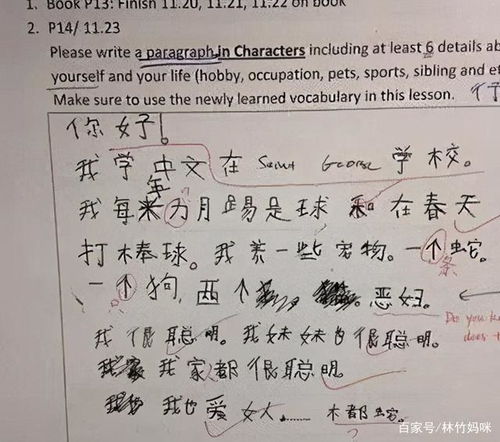 1. Book P13: Finish 11.20, 11.21, 11.22 on book
2. P14/ 11.23
Please write a paragraph in Characters including at least 6 details ab
yourself and your life (hobby, occupation, pets, sports, sibling and et
Make sure to use the newly learned vocabulary in this lesson.
你好!
我学中文在 Saint George 学校。
年
我每 月踢是球和在春天
打棒球。我养一些宠物。一个蛇。
条
一个狗, 两个 恶妇。
Do you k
does t
我很聪明。我妹妹也很聪明。
我家都很聪明。
我也爱女人……木都蛇。
百家号/林竹妈咪